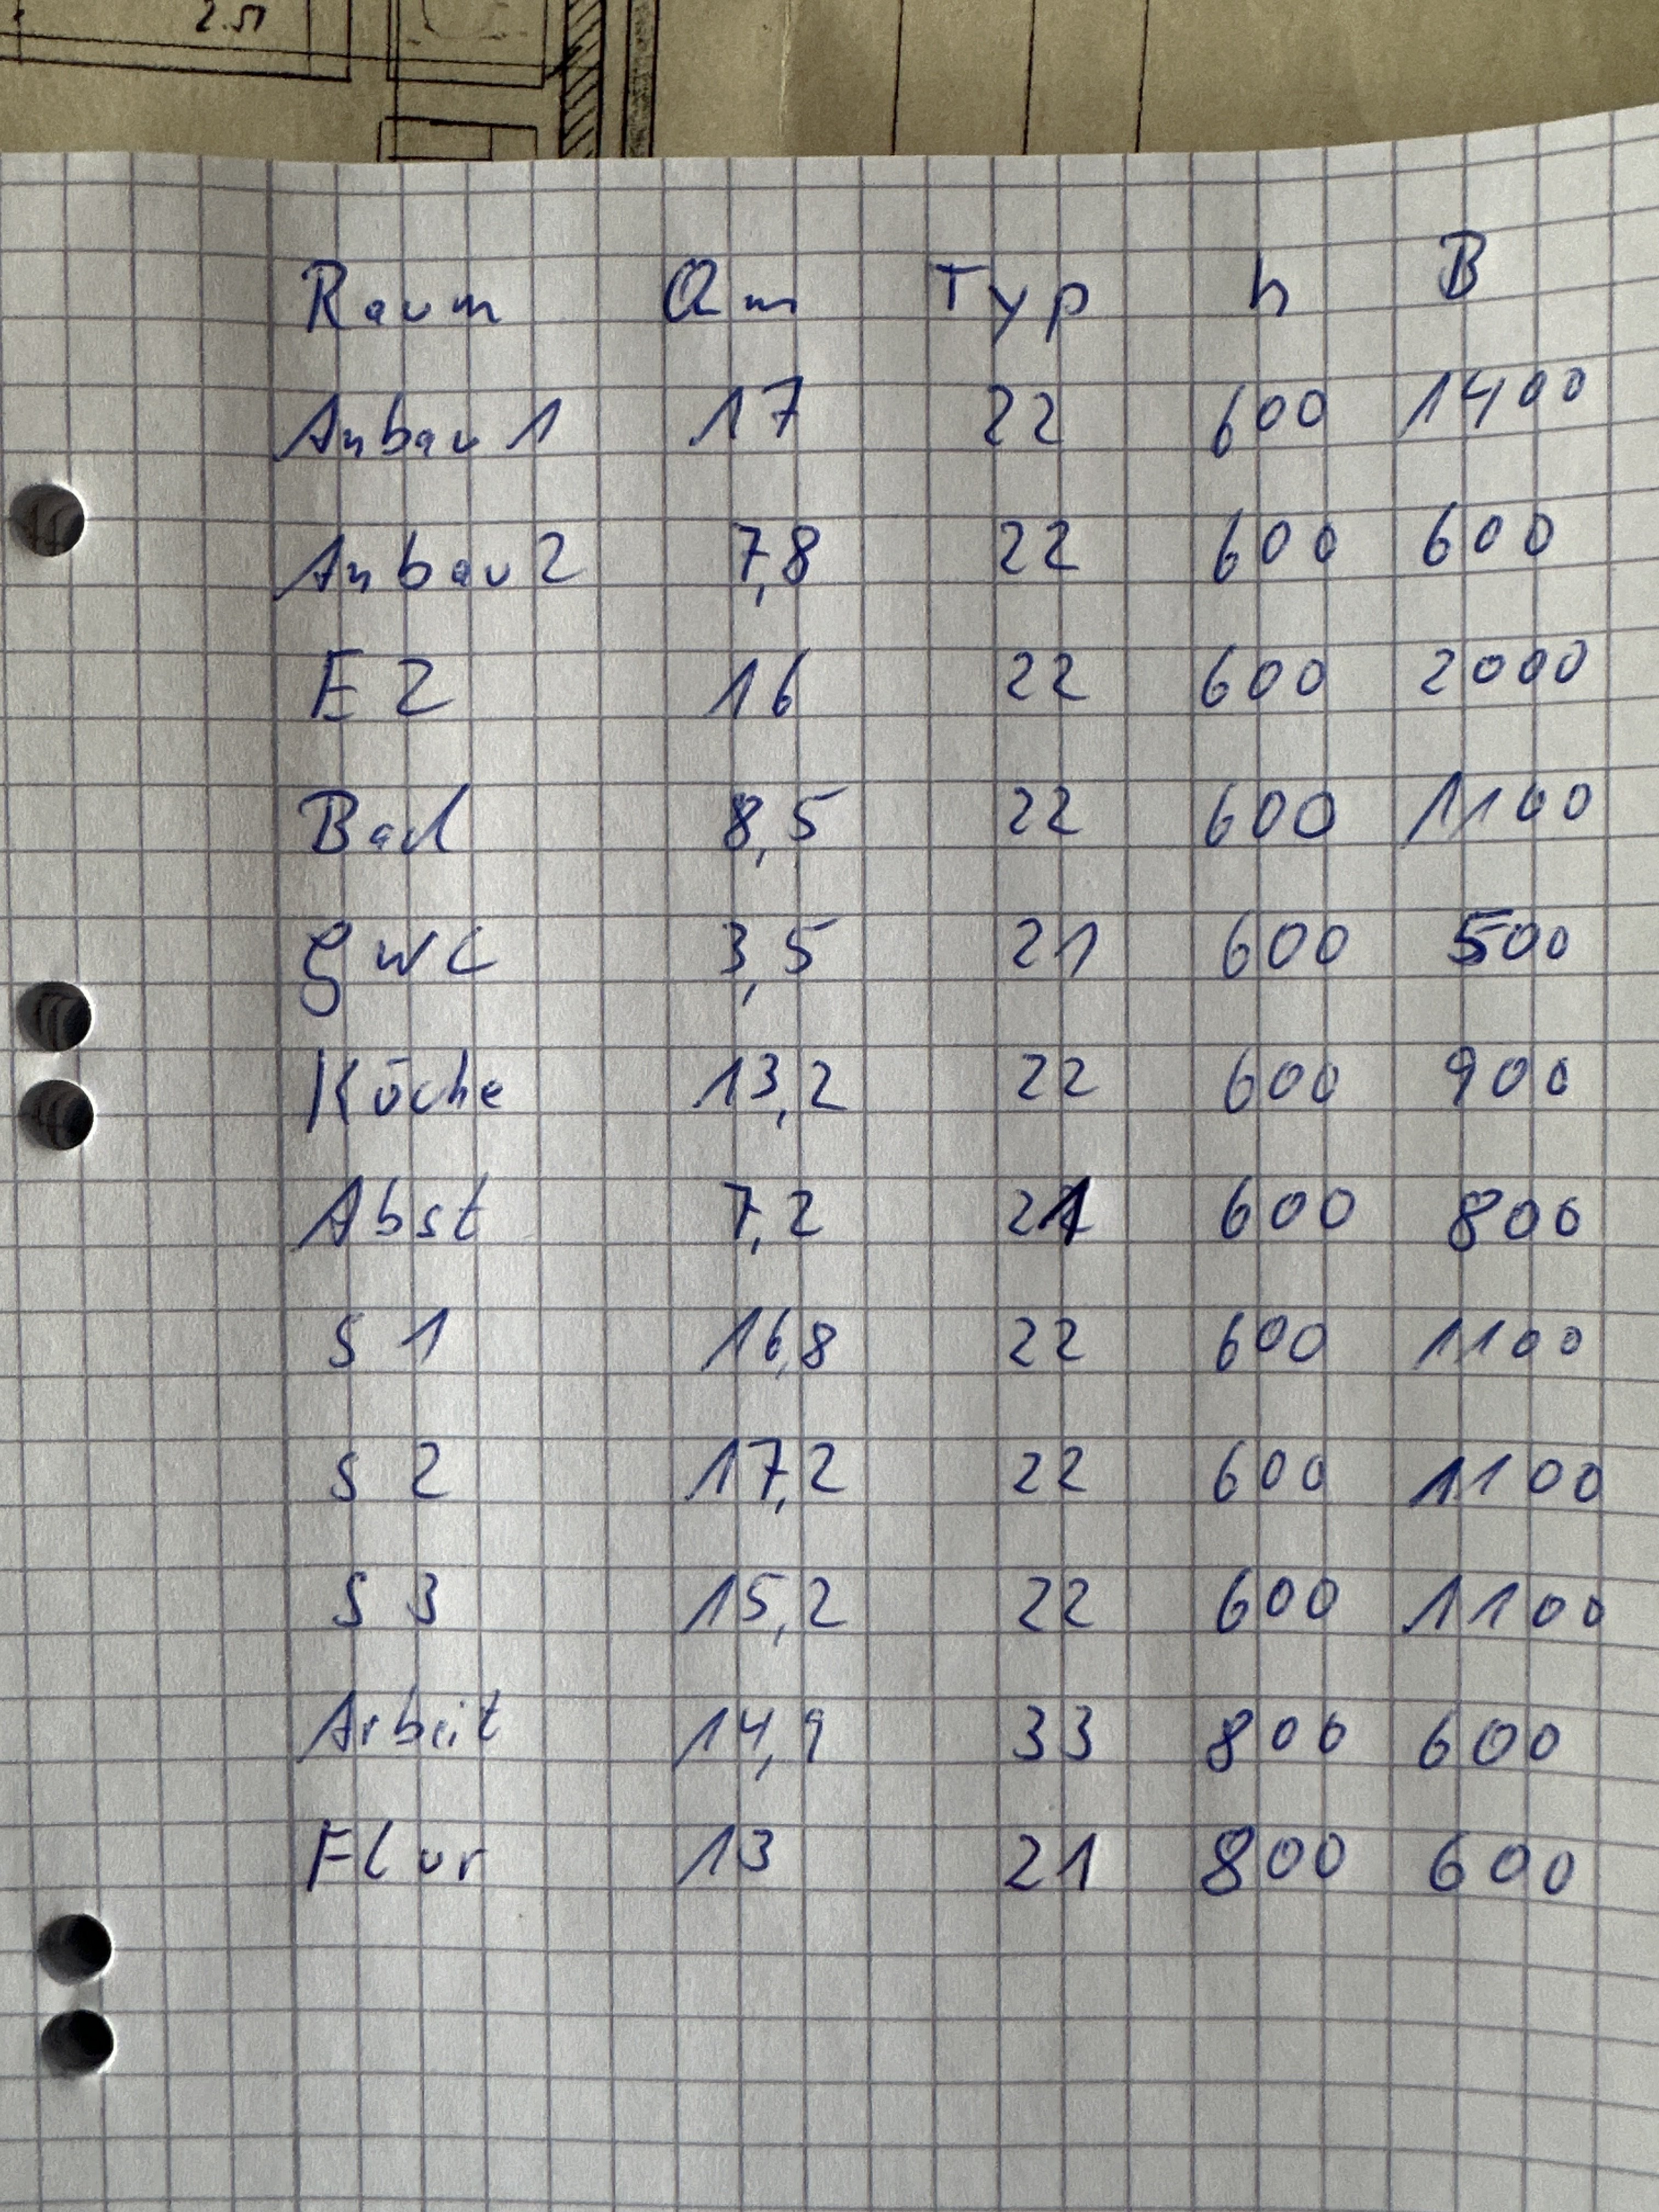 2.51
Raum Qm Typ h B
Anbau 1 17 22 600 1400
Anbau 2 7,8 22 600 600
EZ 16 22 600 2000
Bad 8,5 22 600 1100
GWC 3,5 21 600 500
Küche 13,2 22 600 900
Abst 7,2 21 600 800
S 1 16,8 22 600 1100
S 2 17,2 22 600 1100
S 3 15,2 22 600 1100
Arbeit 14,9 33 800 600
Flur 13 21 800 600